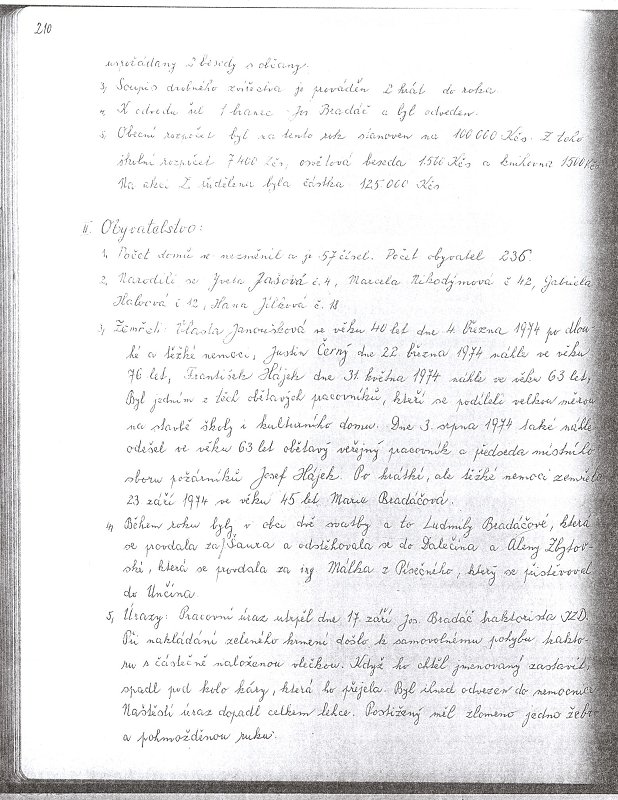 210
uspořádány 2 besedy s občany.
3, Soupis drobného zvířectva je prováděn 2 krát do roka.
4, K odvodu šel 1 branec Jos Bradáč a byl odveden.
5, Obecní rozpočet byl na tento rok stanoven na 100 000 Kčs. Z toho
školní rozpočet 7400 Kčs, osvětová beseda 1500 Kčs a knihovna 1500 Kčs
Na akci Z udělena byla částka 125 000 Kčs
II. Obyvatelstvo:
1, Počet domů se nezměnil a je 57 čísel. Počet obyvatel 236.
2, Narodili se Yveta Jašová č. 4, Marcela Nikodýmová č 42, Gabriela
č. 12, Hana Jílková č. 18
3, Zemřeli: Vlasta Janoušková ve věku 40 let dne 4. března 1974 po dlou-
hé a těžké nemoci, Justin Černý dne 22. března 1974 náhle ve věku
76 let, František Hájek dne 31. května 1974 náhle ve věku 63 let,
Byl jedním z těch obětavých pracovníků, kteří se podíleli velkou měrou
na stavbě školy i kulturního domu. Dne 3. srpna 1974 také náhle
odešel ve věku 63 let obětavý veřejný pracovník a předseda místního
sboru požárníků Josef Hájek. Po krátké, ale těžké nemoci zemřela
23. září 1974 ve věku 45 let Marie Bradáčová.
4, Během roku byly v obci dvě svatby a to Ludmily Bradáčové, která
se provdala za Šaura a odstěhovala se do Dalečína a Aleny Zbytov-
ské, která se provdala za ing Málka z Písečného, který se přistěhoval
do Unčína.
5, Úrazy: Pracovní úraz utrpěl dne 17. září Jos. Bradáč traktorista JZD.
Při nakládání zeleného krmení došlo k samovolnému pohybu trakto-
ru s částečně naloženou vlečkou. Když ho chtěl jmenovaný zastavit,
spadl pod kolo káry, která ho přejela. Byl ihned odvezen do nemocnice
Naštěstí úraz dopadl celkem lehce. Postižený měl zlomeno jedno žebro
a pohmožděnou ruku.